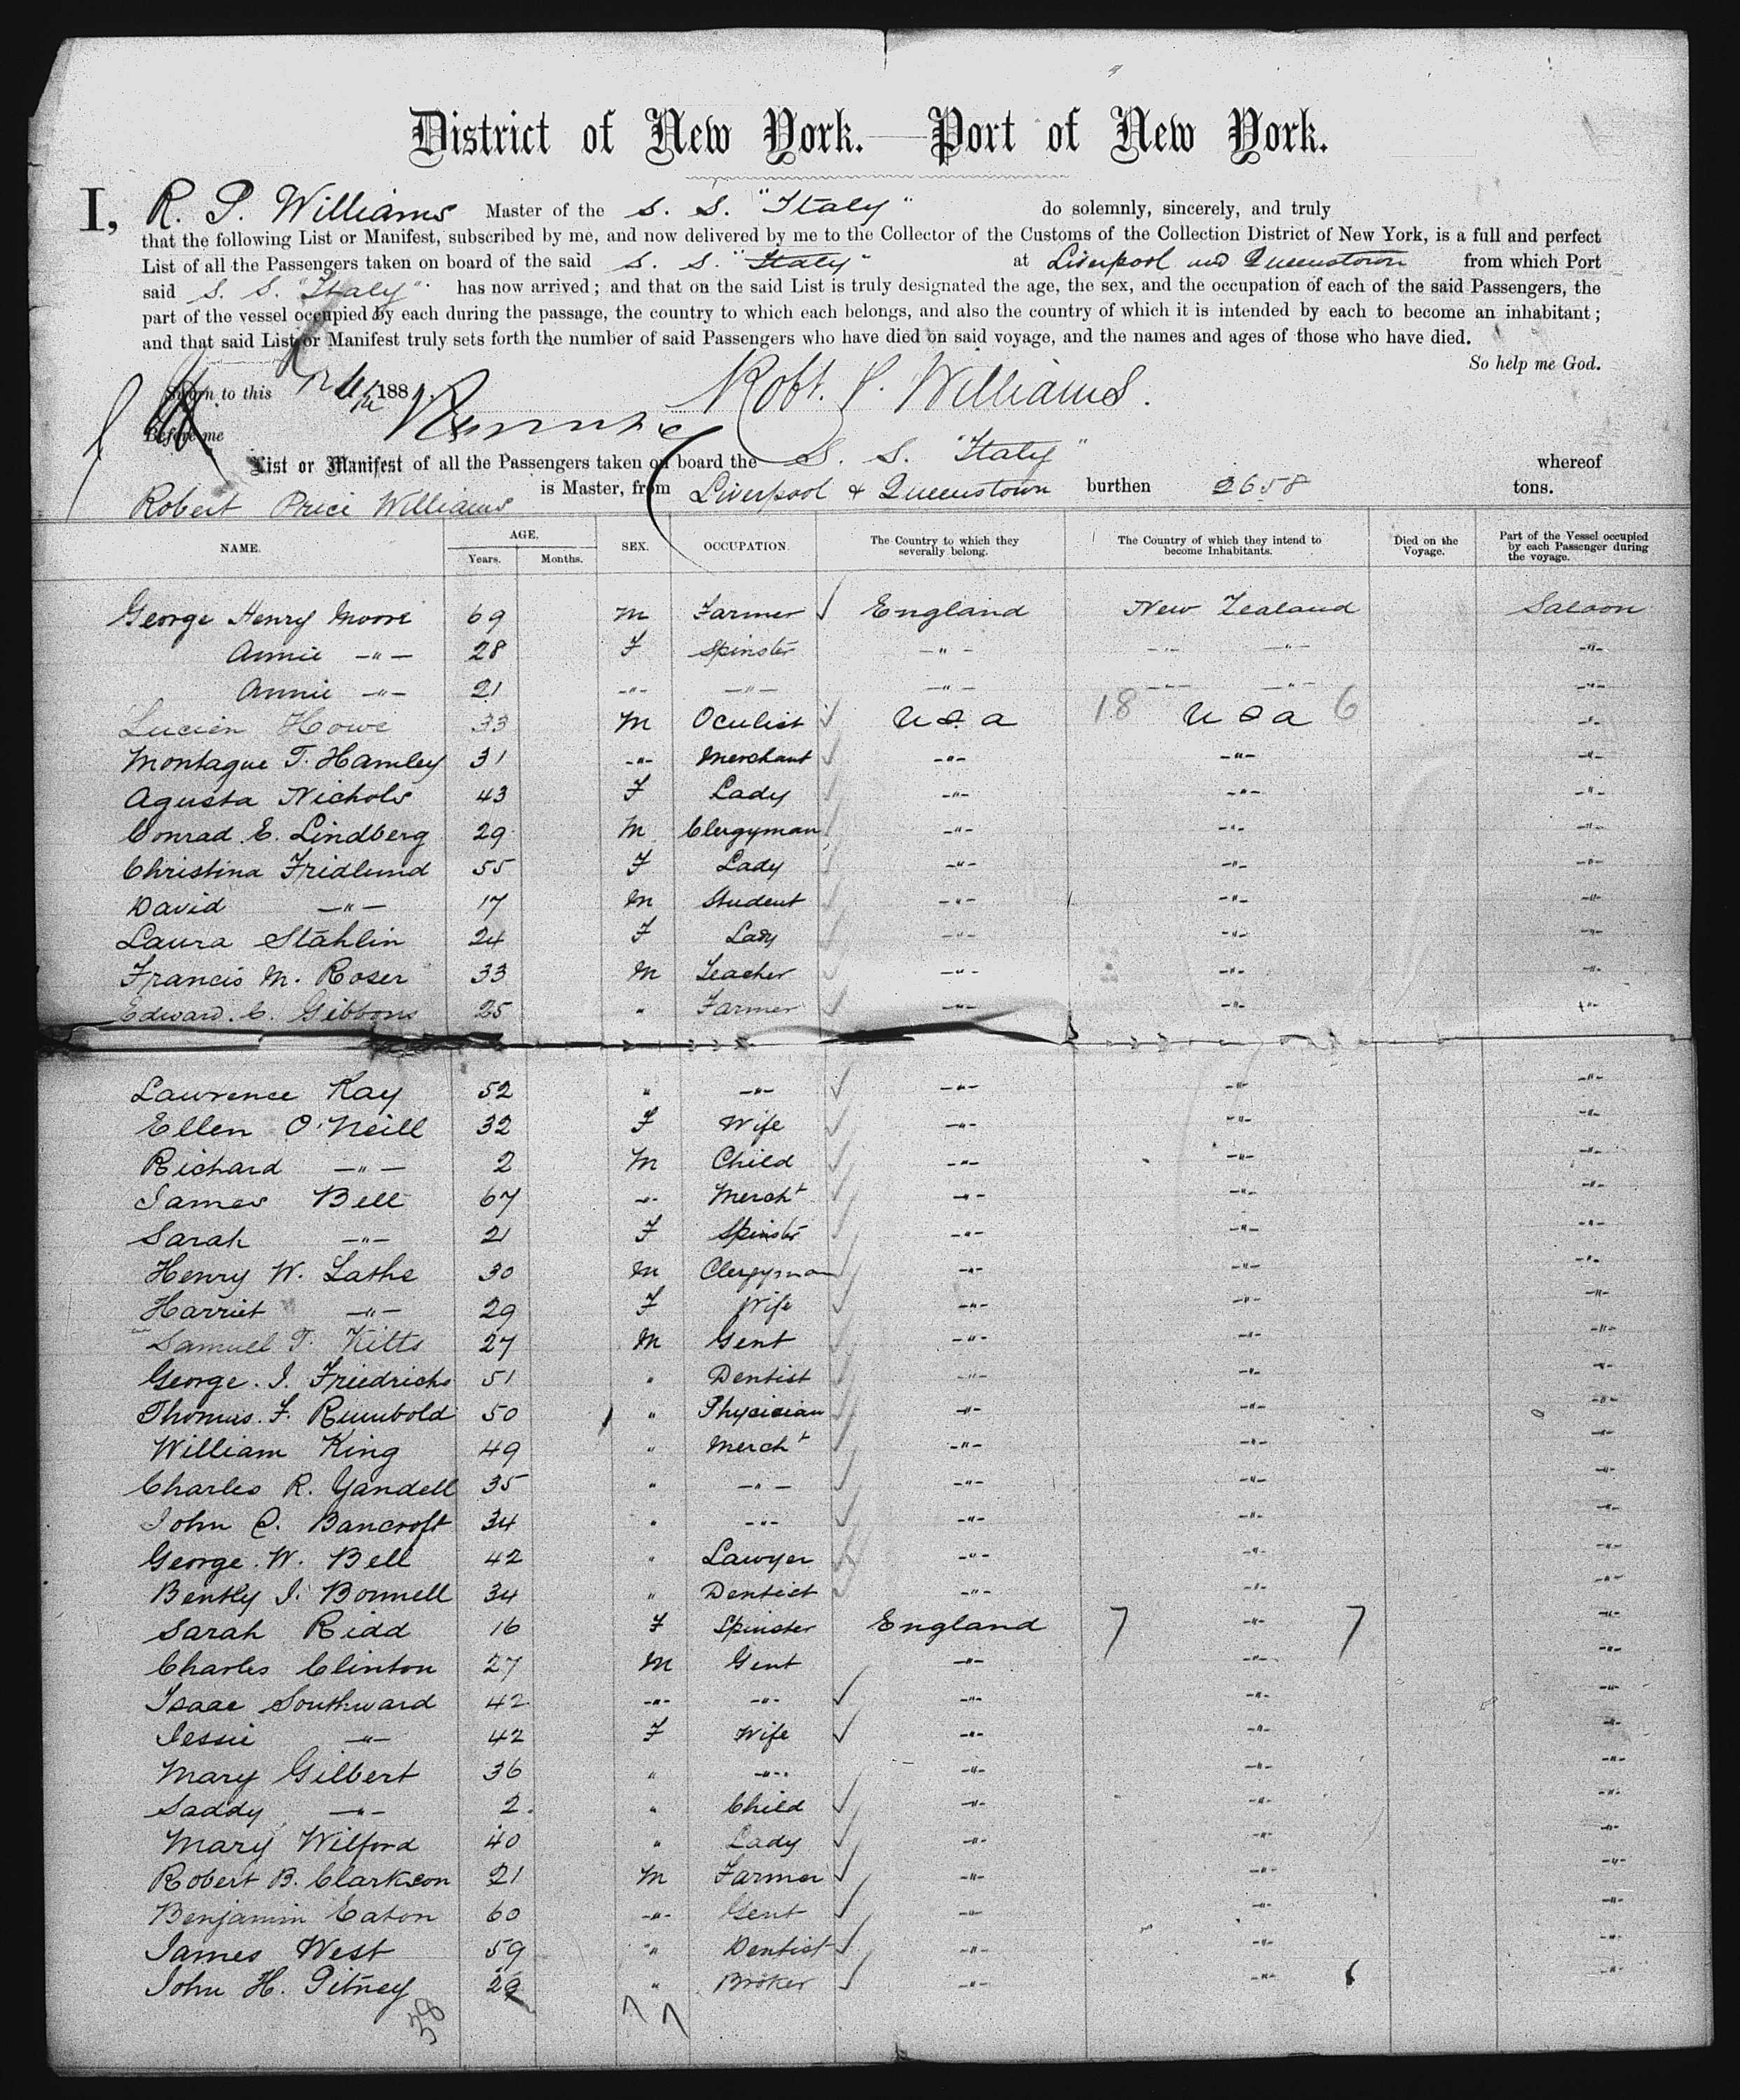 District of New York.—Port of New York.
I, R. P. Williams Master of the S. S. "Italy" do solemnly, sincerely, and truly
that the following List or Manifest, subscribed by me, and now delivered by me to the Collector of the Customs of the Collection District of New York, is a full and perfect
List of all the Passengers taken on board of the said S. S. "Italy" at Liverpool and Queenstown from which Port
said S. S. "Italy" has now arrived; and that on the said List is truly designated the age, the sex, and the occupation of each of the said Passengers, the
part of the vessel occupied by each during the passage, the country to which each belongs, and also the country of which it is intended by each to become an inhabitant;
and that said List or Manifest truly sets forth the number of said Passengers who have died on said voyage, and the names and ages of those who have died.
So help me God.
Sworn to this 188 Robt. P. Williams.
Before me
List or Manifest of all the Passengers taken on board the S. S. "Italy" whereof
Robert Price Williams is Master, from Liverpool & Queenstown burthen 2658 tons.
NAME. AGE. Years. Months. SEX. OCCUPATION. The Country to which they severally belong. The Country of which they intend to become Inhabitants. Died on the Voyage. Part of the Vessel occupied by each Passenger during the voyage.
George Henry Moore 69 M Farmer England New Zealand Saloon
Annie -"- 28 F Spinster -"- -"- -"- -"-
Annie -"- 21 -"- -"- -"- -"- -"- -"-
Lucien Howe 33 M Oculist U S A 18 U S A 6 -"-
Montague T. Hamley 31 -"- Merchant -"- -"- -"-
Agusta Nichols 43 F Lady -"- -"- -"-
Conrad E. Lindberg 29 M Clergyman -"- -"- -"-
Christina Fridlund 55 F Lady -"- -"- -"-
David -"- 17 M Student -"- -"- -"-
Laura Stahlin 24 F Lady -"- -"- -"-
Francis M. Roser 33 M Teacher -"- -"- -"-
Edward. C. Gibbons 25 " Farmer -"- -"- -"-
Lawrence Kay 52 " -"- -"- -"- -"-
Ellen O'Neill 32 F Wife -"- -"- -"-
Richard -"- 2 M Child -"- -"- -"-
James Bell 67 -"- Mercht -"- -"- -"-
Sarah -"- 21 F Spinster -"- -"- -"-
Henry W. Lathe 30 M Clergyman -"- -"- -"-
Harriet -"- 29 F Wife -"- -"- -"-
Samuel T. Kitts 27 M Gent -"- -"- -"-
George. J. Friedrichs 51 " Dentist -"- -"- -"-
Thomas. F. Rumbold 50 " Physician -"- -"- -"-
William King 49 " Mercht -"- -"- -"-
Charles R. Yandell 35 " -"- -"- -"- -"-
John C. Bancroft 34 " -"- -"- -"- -"-
George. W. Bell 42 " Lawyer -"- -"- -"-
Bently J. Bonnell 34 " Dentist -"- -"- -"-
Sarah Ridd 16 F Spinster England 7 -"- 7 -"-
Charles Clinton 27 M Gent -"- -"- -"-
Isaac Southward 42 -"- -"- -"- -"- -"-
Jessie -"- 42 F Wife -"- -"- -"-
Mary Gilbert 36 " -"- -"- -"- -"-
Saddy -"- 2 " Child -"- -"- -"-
Mary Wilford 40 " Lady -"- -"- -"-
Robert B. Clarkson 21 M Farmer -"- -"- -"-
Benjamin Eaton 60 -"- Gent -"- -"- -"-
James West 59 " Dentist -"- -"- -"-
John H. Pitney 29 " Broker -"- -"- -"-
38 7 7